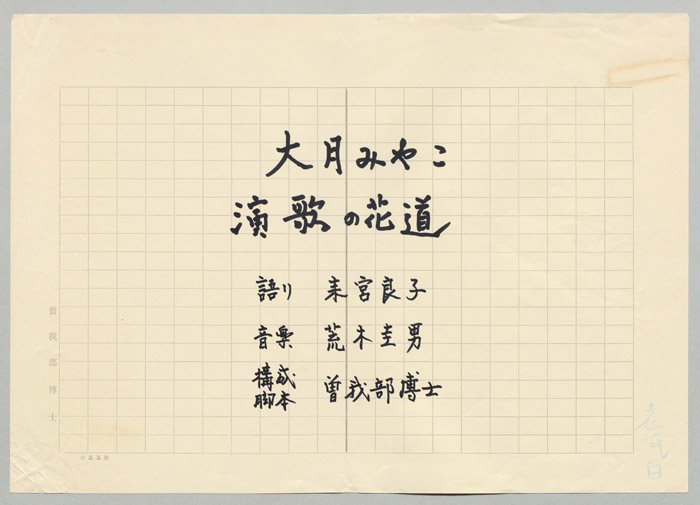 大月みやこ
演歌の花道
語り 来宮良子
音楽 荒木圭男
構成
脚本 曽我部博士
曽我部博士